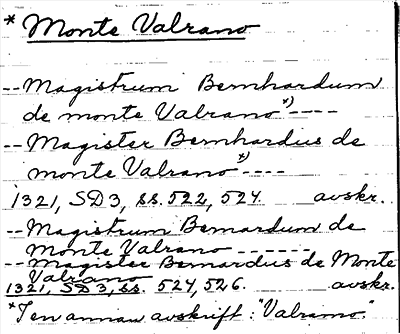 * Monte Valrano
-- Magistrum Bernhardum
de monte Valrano *) ----
-- Magister Bernhardus de
monte Valrano *) ----
1321, SD3, ss. 522, 524. avskr.
-- Magistrum Bernardum de
Monte Valrano ------
-- Magister Bernardus de Monte
Valrano
1321, SD3, ss. 524, 526. avskr.
* I en annan avskrift: "Valramo."